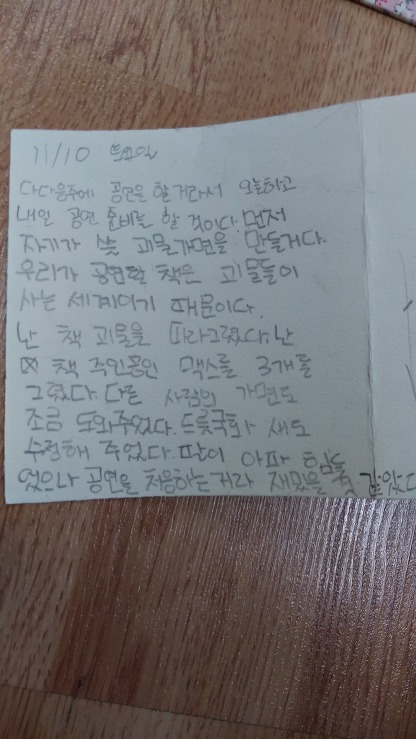 11/10 토요일
다다음주에 공연을 할 거라서 오늘하고
내일 공연 준비를 할 것이다. 먼저
자기가 쓸 괴물가면을 만들거다.
우리가 공연할 책은 괴물들이
사는 세계이기 때문이다.
난 책 괴물을 따라그렸다. 난
책 주인공인 맥스를 3개를
그렸다. 다른 사람의 가면도
조금 도와주었다.
수정해 주었다. 팔이 아파 힘들
었으나 공연을 처음하는거라 재밌을 것 같았다